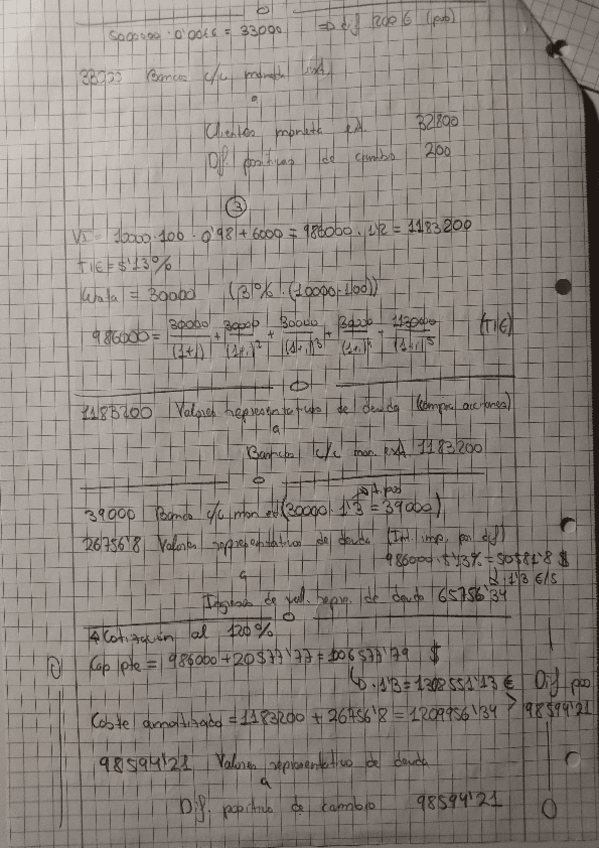 5000000 · 0'0066 = 33000 => dif 200€ (pos)
33000 Bancos c/c moneda ext.
a
Clientes moneda ext. 32800
Dif. positivas de cambio 200
③
VI = 10000·100 · 0'98 + 6000 = 986000 · 1'2 = 1183200
TIE = 5'13%
Cuota = 30000 (3% · (10000·100))
986000 = 30000/(1+i) + 30000/(1+i)² + 30000/(1+i)³ + 30000/(1+i)⁴ + 1130000/(1+i)⁵ (TIE)
1183200 Valores representativos de deuda (compra acciones)
a
Bancos c/c mon. ext. 1183200
dif. pos
39000 Banco c/c mon ext (30000 · 1'3 = 39000)
26756'8 Valores representativos de deuda (Int. imp. por dif)
986000 · 5'13% = 50581'8 $
· 1'3 €/$
a
Ingresos de val. repre. de deuda 65756'34
* Cotización al 120%
Cap pte = 986000 + 20577'77 = 1006577'79 $
· 1'3 = 1308551'13 € Dif pos
Coste amortizado = 1183200 + 26756'8 = 1209956'34 > 98594'21
98594'21 Valores representativo de deuda
a
Dif. positiva de cambio 98594'21